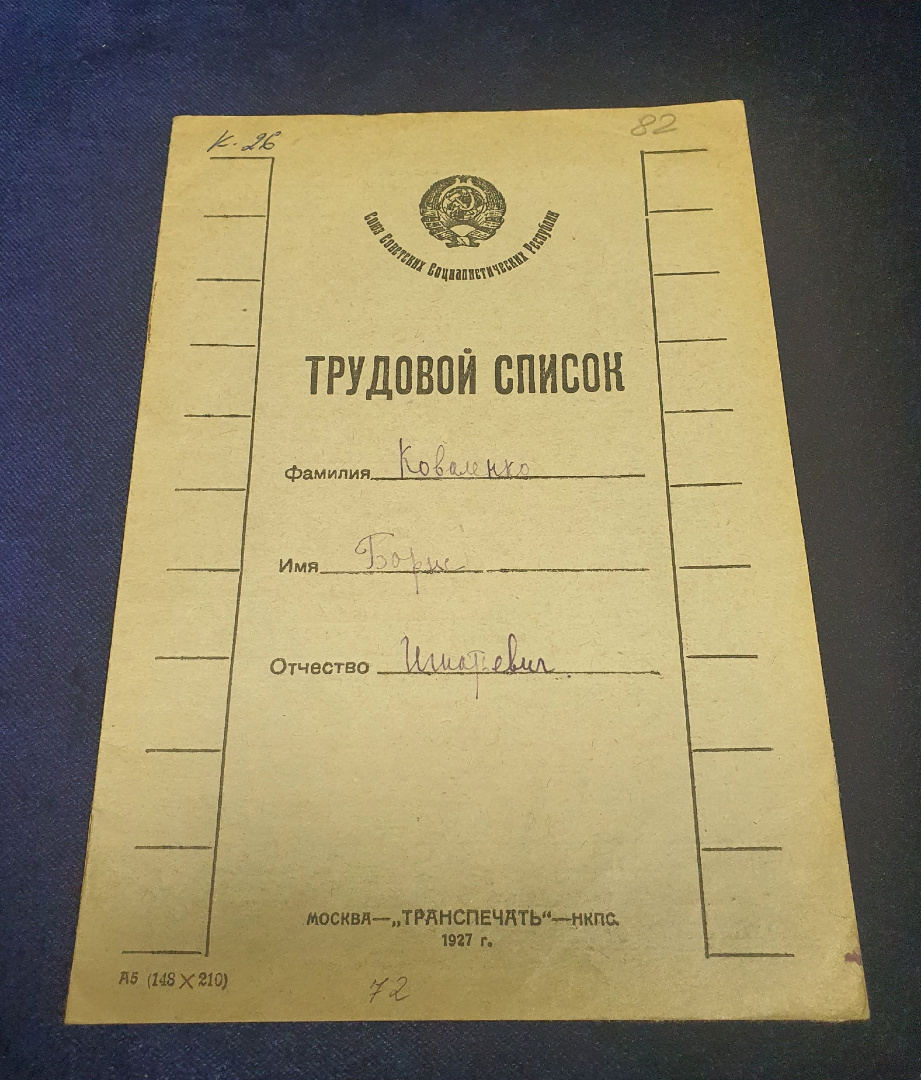 К. 26
82
Союз Советских Социалистических Республик
ТРУДОВОЙ СПИСОК
Фамилия Коваленко
Имя Борис
Отчество Игнатьевич
МОСКВА—„ТРАНСПЕЧАТЬ“—НКПС.
1927 г.
А5 (148 X 210)
72